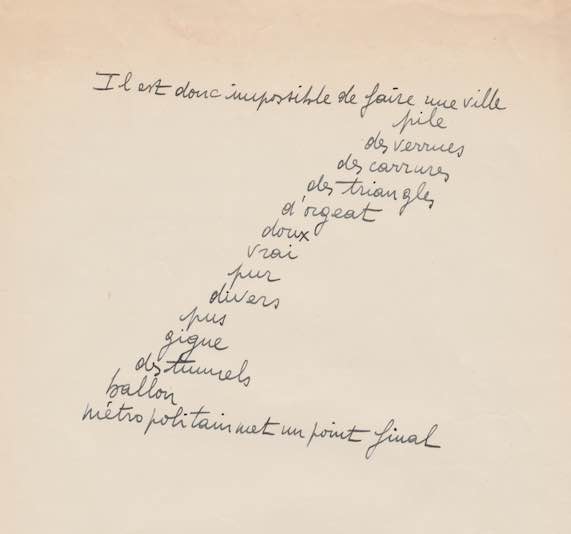 Il est donc impossible de faire une ville
pile
des verrues
des carrures
des triangles
d'orgeat
doux
vrai
pur
divers
pus
gigue
des tunnels
ballon
métropolitain met un point final